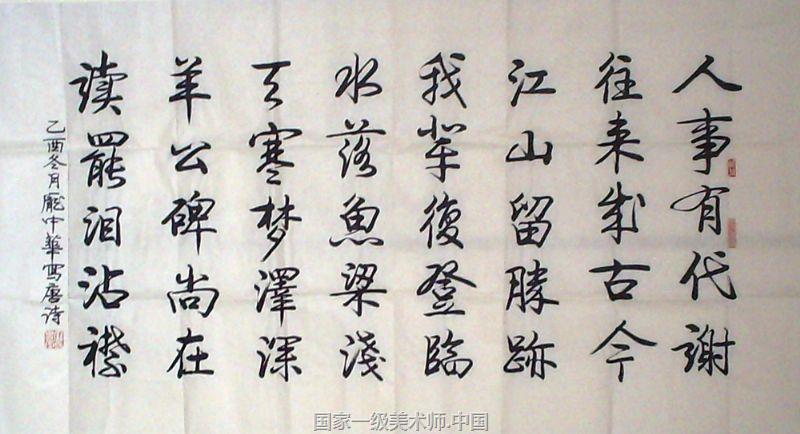 人事有代謝
往来成古今
江山留勝跡
我輩復登臨
水落魚梁淺
天寒梦澤深
羊公碑尚在
读罷泪沾襟
乙酉冬月龐中華寫唐诗
国家一级美术师.中国